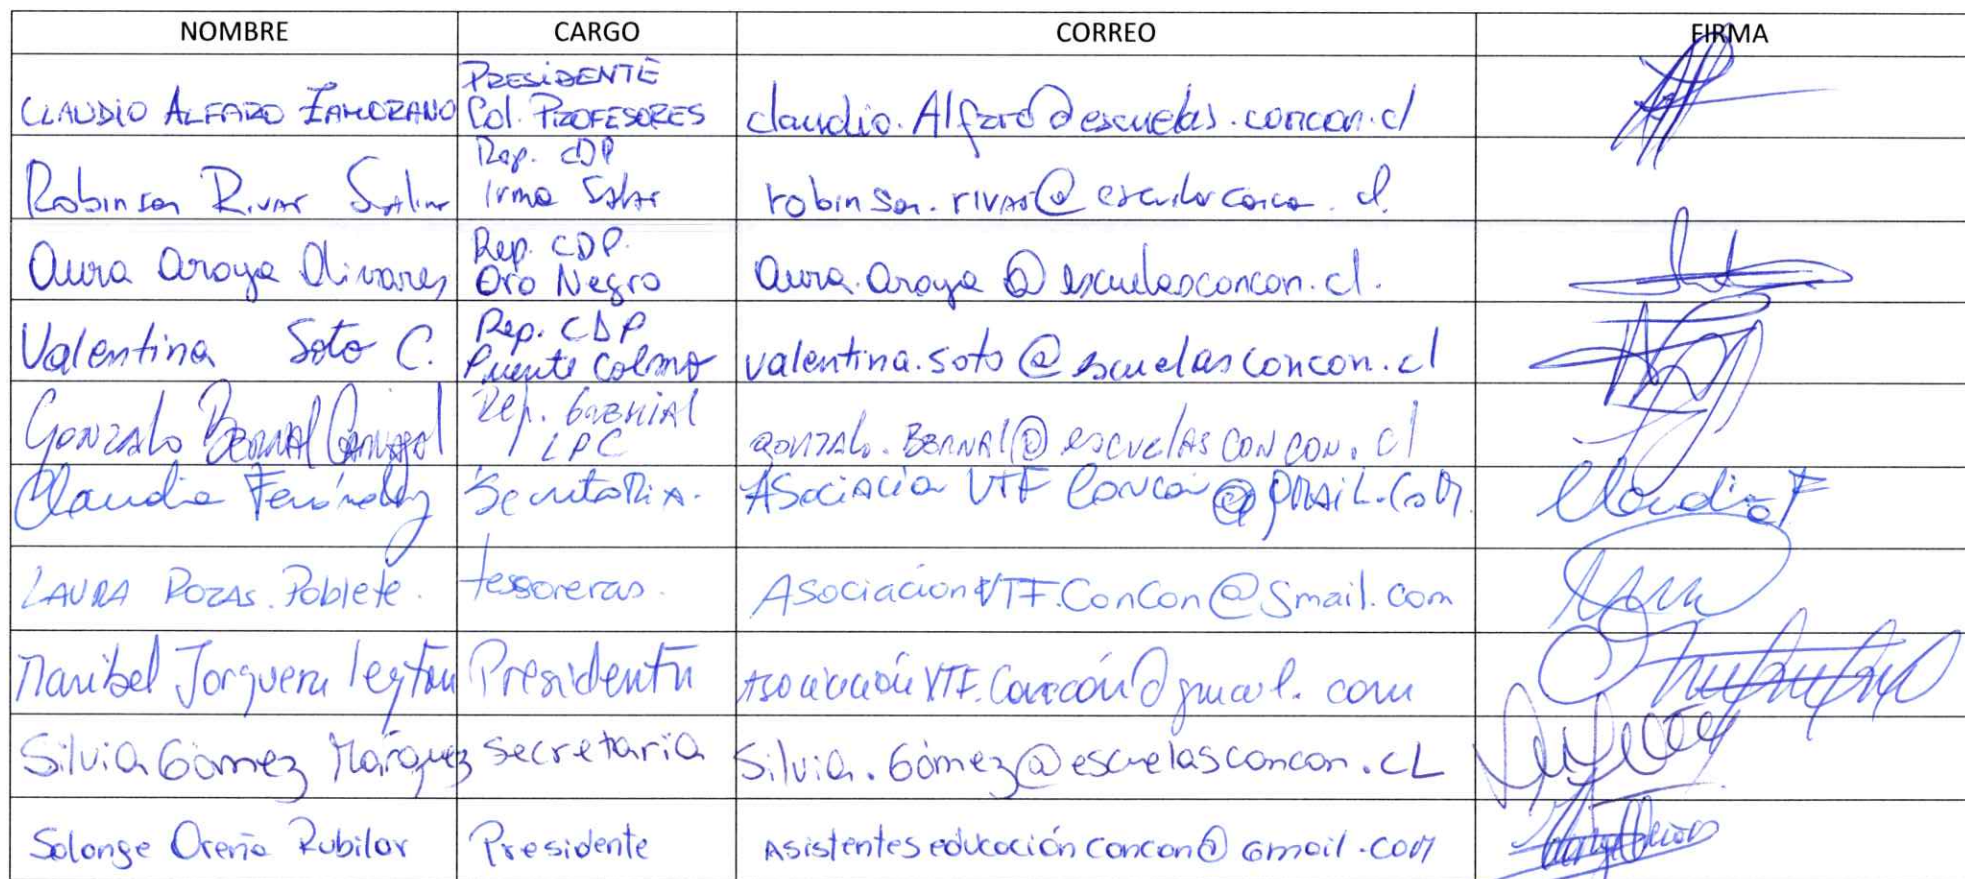 NOMBRE CARGO CORREO FIRMA
PRESIDENTE
CLAUDIO ALFARO ZAMORANO Col. PROFESORES claudio.Alfaro@escuelas.concon.cl
Rep. CDP
Robinson Rivas Salinas Irma Salas robinson.rivas@escuelasconcon.cl.
Rep. CDP.
Aura Araya Olivares Oro Negro aura.araya@escuelasconcon.cl.
Rep. CDP
Valentina Soto C. Puente Colmo valentina.soto@escuelasconcon.cl
Rep. GREMIAL
Gonzalo BERNAL LPC gonzalo.BERNAL@escuelasconcon.cl
Claudia Fernández Secretaria. Asociacion VTF Concon@gmail.com Claudia F
LAURA ROZAS. Poblete. tesoreras. Asociacion VTF.ConCon@Gmail.com
Maribel Jorquera leyton Presidenta Asociación VTF.Concón@gmail.com
Silvia Gómez Márquez secretaria Silvia.Gómez@escuelasconcon.cL
Solange Oreña Rubilar Presidente Asistenteseducaciónconcon@Gmail.com